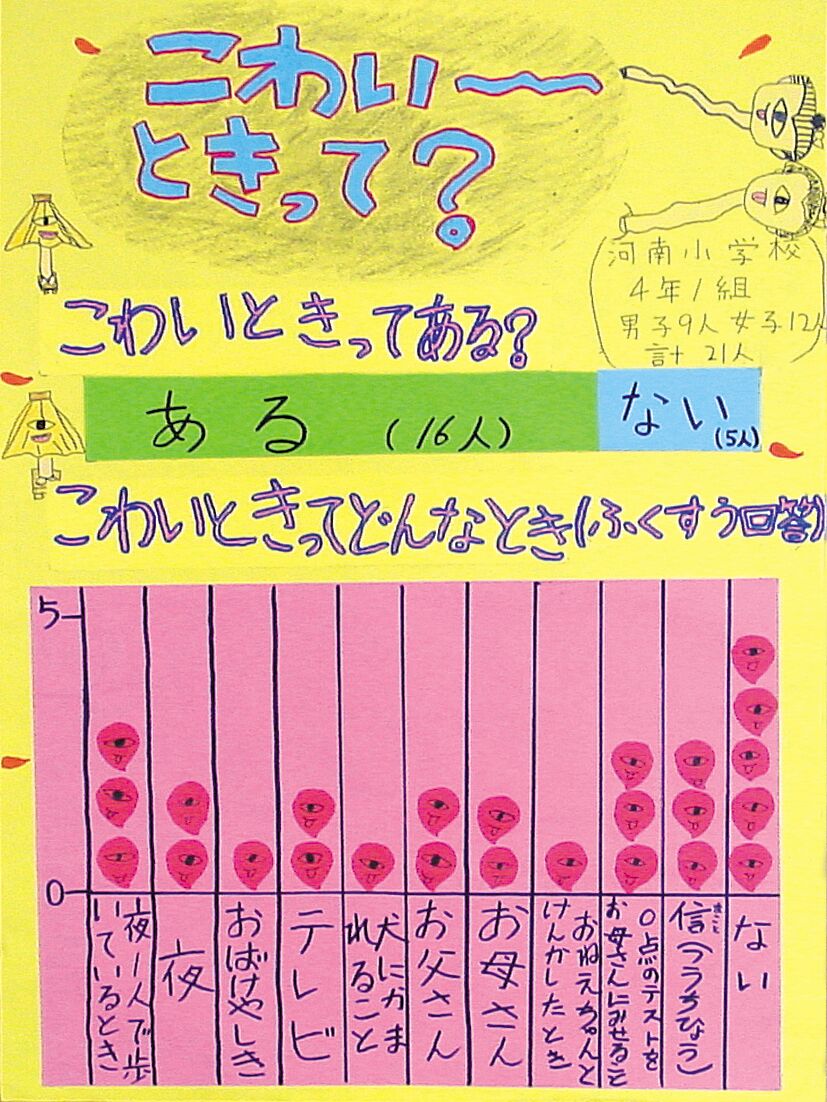 こわい〜
ときって？
河南小学校
4年1組
男子9人 女子12人
計 21人
こわいときってある？
ある (16人)
ない (5人)
こわいときってどんなとき(ふくすう回答)
5
0
夜1人で歩いているとき
夜
おばけやしき
テレビ
犬にかまれること
お父さん
お母さん
おねえちゃんとけんかしたとき
0点のテストをお母さんにみせること
ない